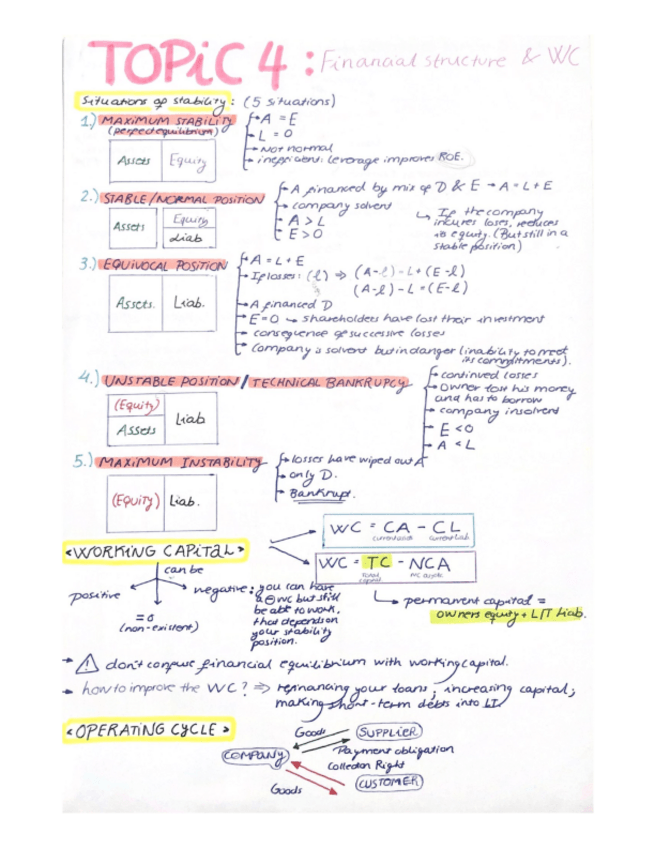 TOPIC 4 : Financial structure & WC
Situations of stability: (5 situations)
1.) MAXIMUM STABILITY
(perfect equilibrium)
A = E
L = 0
Not normal
inefficient: leverage improves ROE.
Assets Equity
2.) STABLE/NORMAL POSITION
A financed by mix of D & E → A = L+E
company solvent
A > L
E > 0
↳ If the company
incures loses, reduces
its equity. (But still in a
stable position)
Assets Equity
Liab
3.) EQUIVOCAL POSITION
A = L + E
If losses: (l) ⇒ (A-l) = L+(E-l)
(A-l) - L = (E-l)
A financed D
E=0 ↪ shareholders have lost their investment
consequence of successive losses
company is solvent but in danger (inability to meet
its commitments).
Assets. Liab.
4.) UNSTABLE POSITION / TECHNICAL BANKRUPCY
continued losses
owner lost his money
and has to borrow
company insolvent
E < 0
A < L
(Equity) Liab
Assets
5.) MAXIMUM INSTABILITY
losses have wiped out A
only D.
Bankrupt.
(Equity) Liab.
<WORKING CAPITAL>
WC = CA - CL
current assets current Liab.
WC = TC - NCA
Total capital NC assets
↳ permanent capital =
owners equity + L/T Liab.
can be
positive
= 0
(non-existent)
negative: you can have
a ⊖ WC but still
be able to work,
that depends on
your stability
position.
→ ⚠ don't confuse financial equilibrium with working capital.
→ how to improve the WC? ⇒ refinancing your loans; increasing capital;
making short-term debts into LT
<OPERATING CYCLE>
Goods SUPPLIER
COMPANY Payment obligation
Collection Right
Goods CUSTOMER